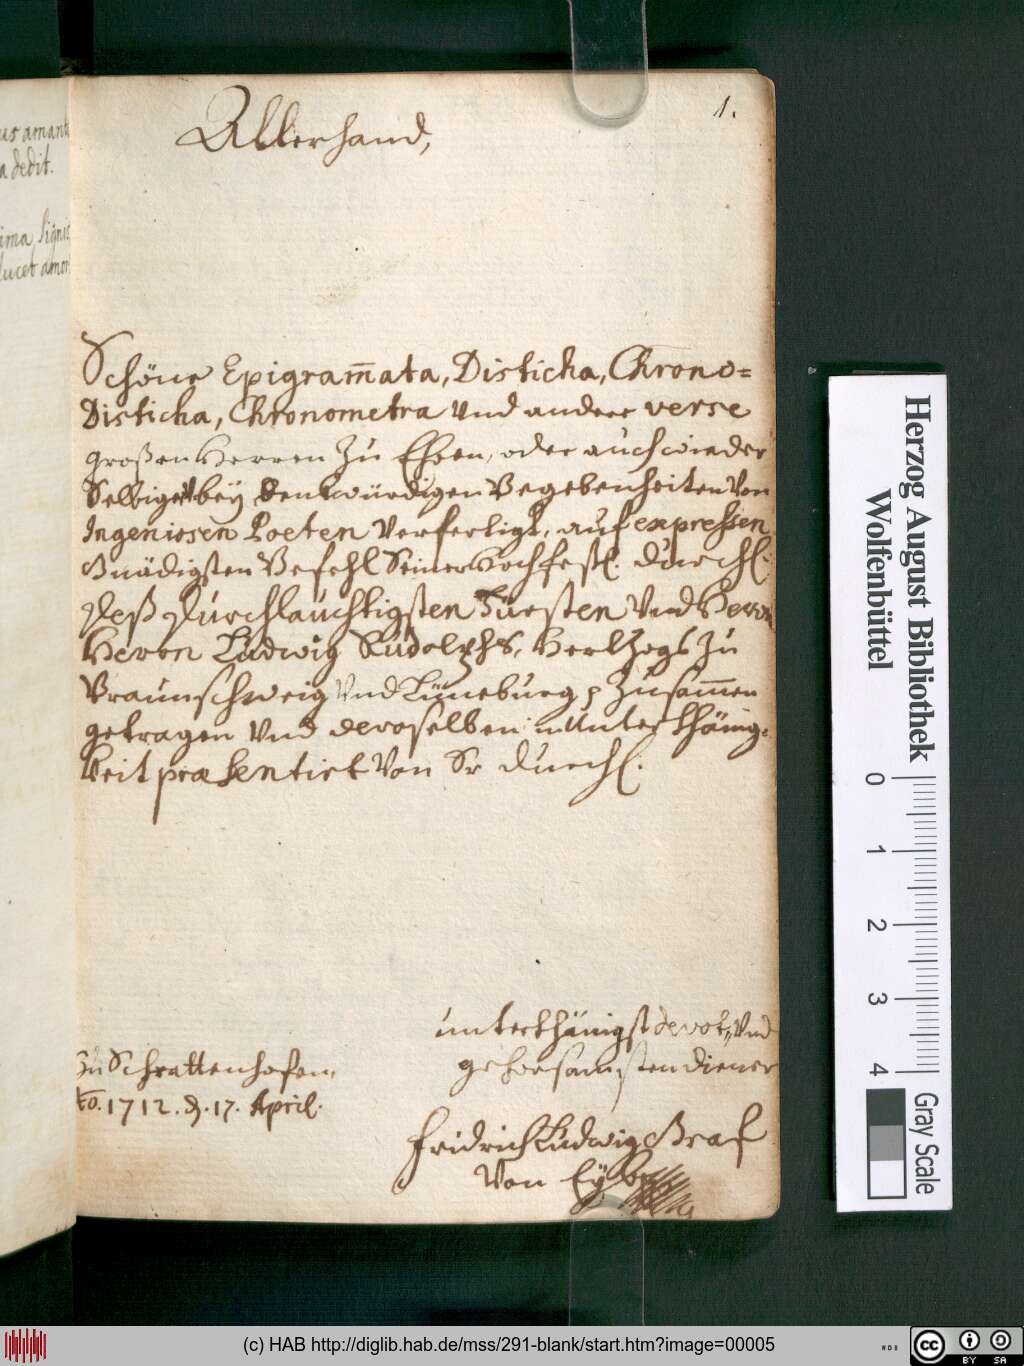 us amant
a dedit.
ima Signa
lucet amor
1.
Allerhand,
Schöne Epigram̄ata, Disticha, Chrono=
Disticha, Chronometra Vnd andere verse
großen Herren Zu Ehren, oder auch wieder
Selbige bey denkwürdigen Begebenheiten Von
Ingeniosen Poeten Verfertigt, auf expressen
Gnädigsten Befehl Seiner Hochfstl. Durchl.
Deß Durchlauchtigsten Fürsten Vnd Herrn
Herrn Ludwig Rudolphs, Hertzogs Zu
Braunschweig Vnd Lüneburg p Zusam̄en
getragen Vnd deroselben in Unterthänig=
keit præsentirt Von Sr Durchl.
unterthänigst devot, Vnd
gehorsambsten diener
Zu Schrattenhofen,
Ao. 1712. d. 17. April.
Fridrich Ludwig Graf
Von Eyb
Herzog August Bibliothek
Wolfenbüttel
0 1 2 3 4
Gray Scale
(c) HAB http://diglib.hab.de/mss/291-blank/start.htm?image=00005
WDB
cc BY SA